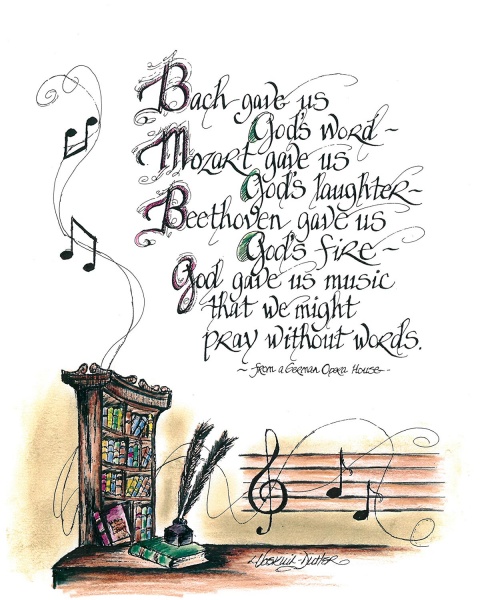 Bach gave us
God's word ~
Mozart gave us
God's laughter ~
Beethoven gave us
God's fire ~
God gave us music
that we might
pray without words.
~ from a German Opera House ~